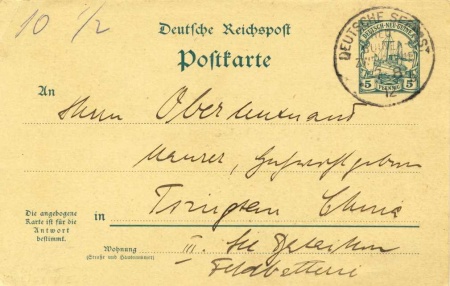 10 1/2
Deutsche Reichspost
Postkarte
DEUTSCHE SEEPOST
5 PFENNIG 5
An
Herrn Oberleutnant
Die angebogene
Karte ist für die
Antwort
bestimmt.
in Tsingtau China
Wohnung
(Straße und Hausnummer)
III.
Feldbatterie